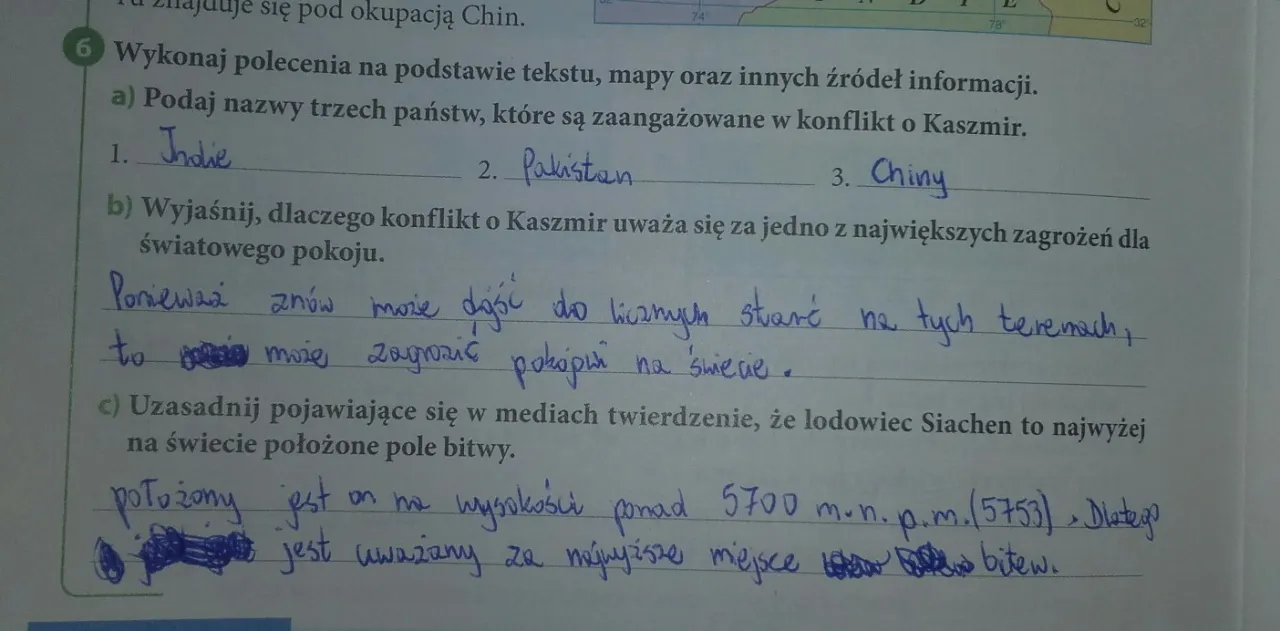 znajduje się pod okupacją Chin.
74°
78°
32°
6 Wykonaj polecenia na podstawie tekstu, mapy oraz innych źródeł informacji.
a) Podaj nazwy trzech państw, które są zaangażowane w konflikt o Kaszmir.
1. Indie 2. Pakistan 3. Chiny
b) Wyjaśnij, dlaczego konflikt o Kaszmir uważa się za jedno z największych zagrożeń dla
światowego pokoju.
Ponieważ znów może dojść do licznych starć na tych terenach,
to może zagrozić pokojowi na świecie.
c) Uzasadnij pojawiające się w mediach twierdzenie, że lodowiec Siachen to najwyżej
na świecie położone pole bitwy.
położony jest on na wysokości ponad 5700 m.n.p.m.(5753). Dlatego
jest uważany za najwyższe miejsce bitew.